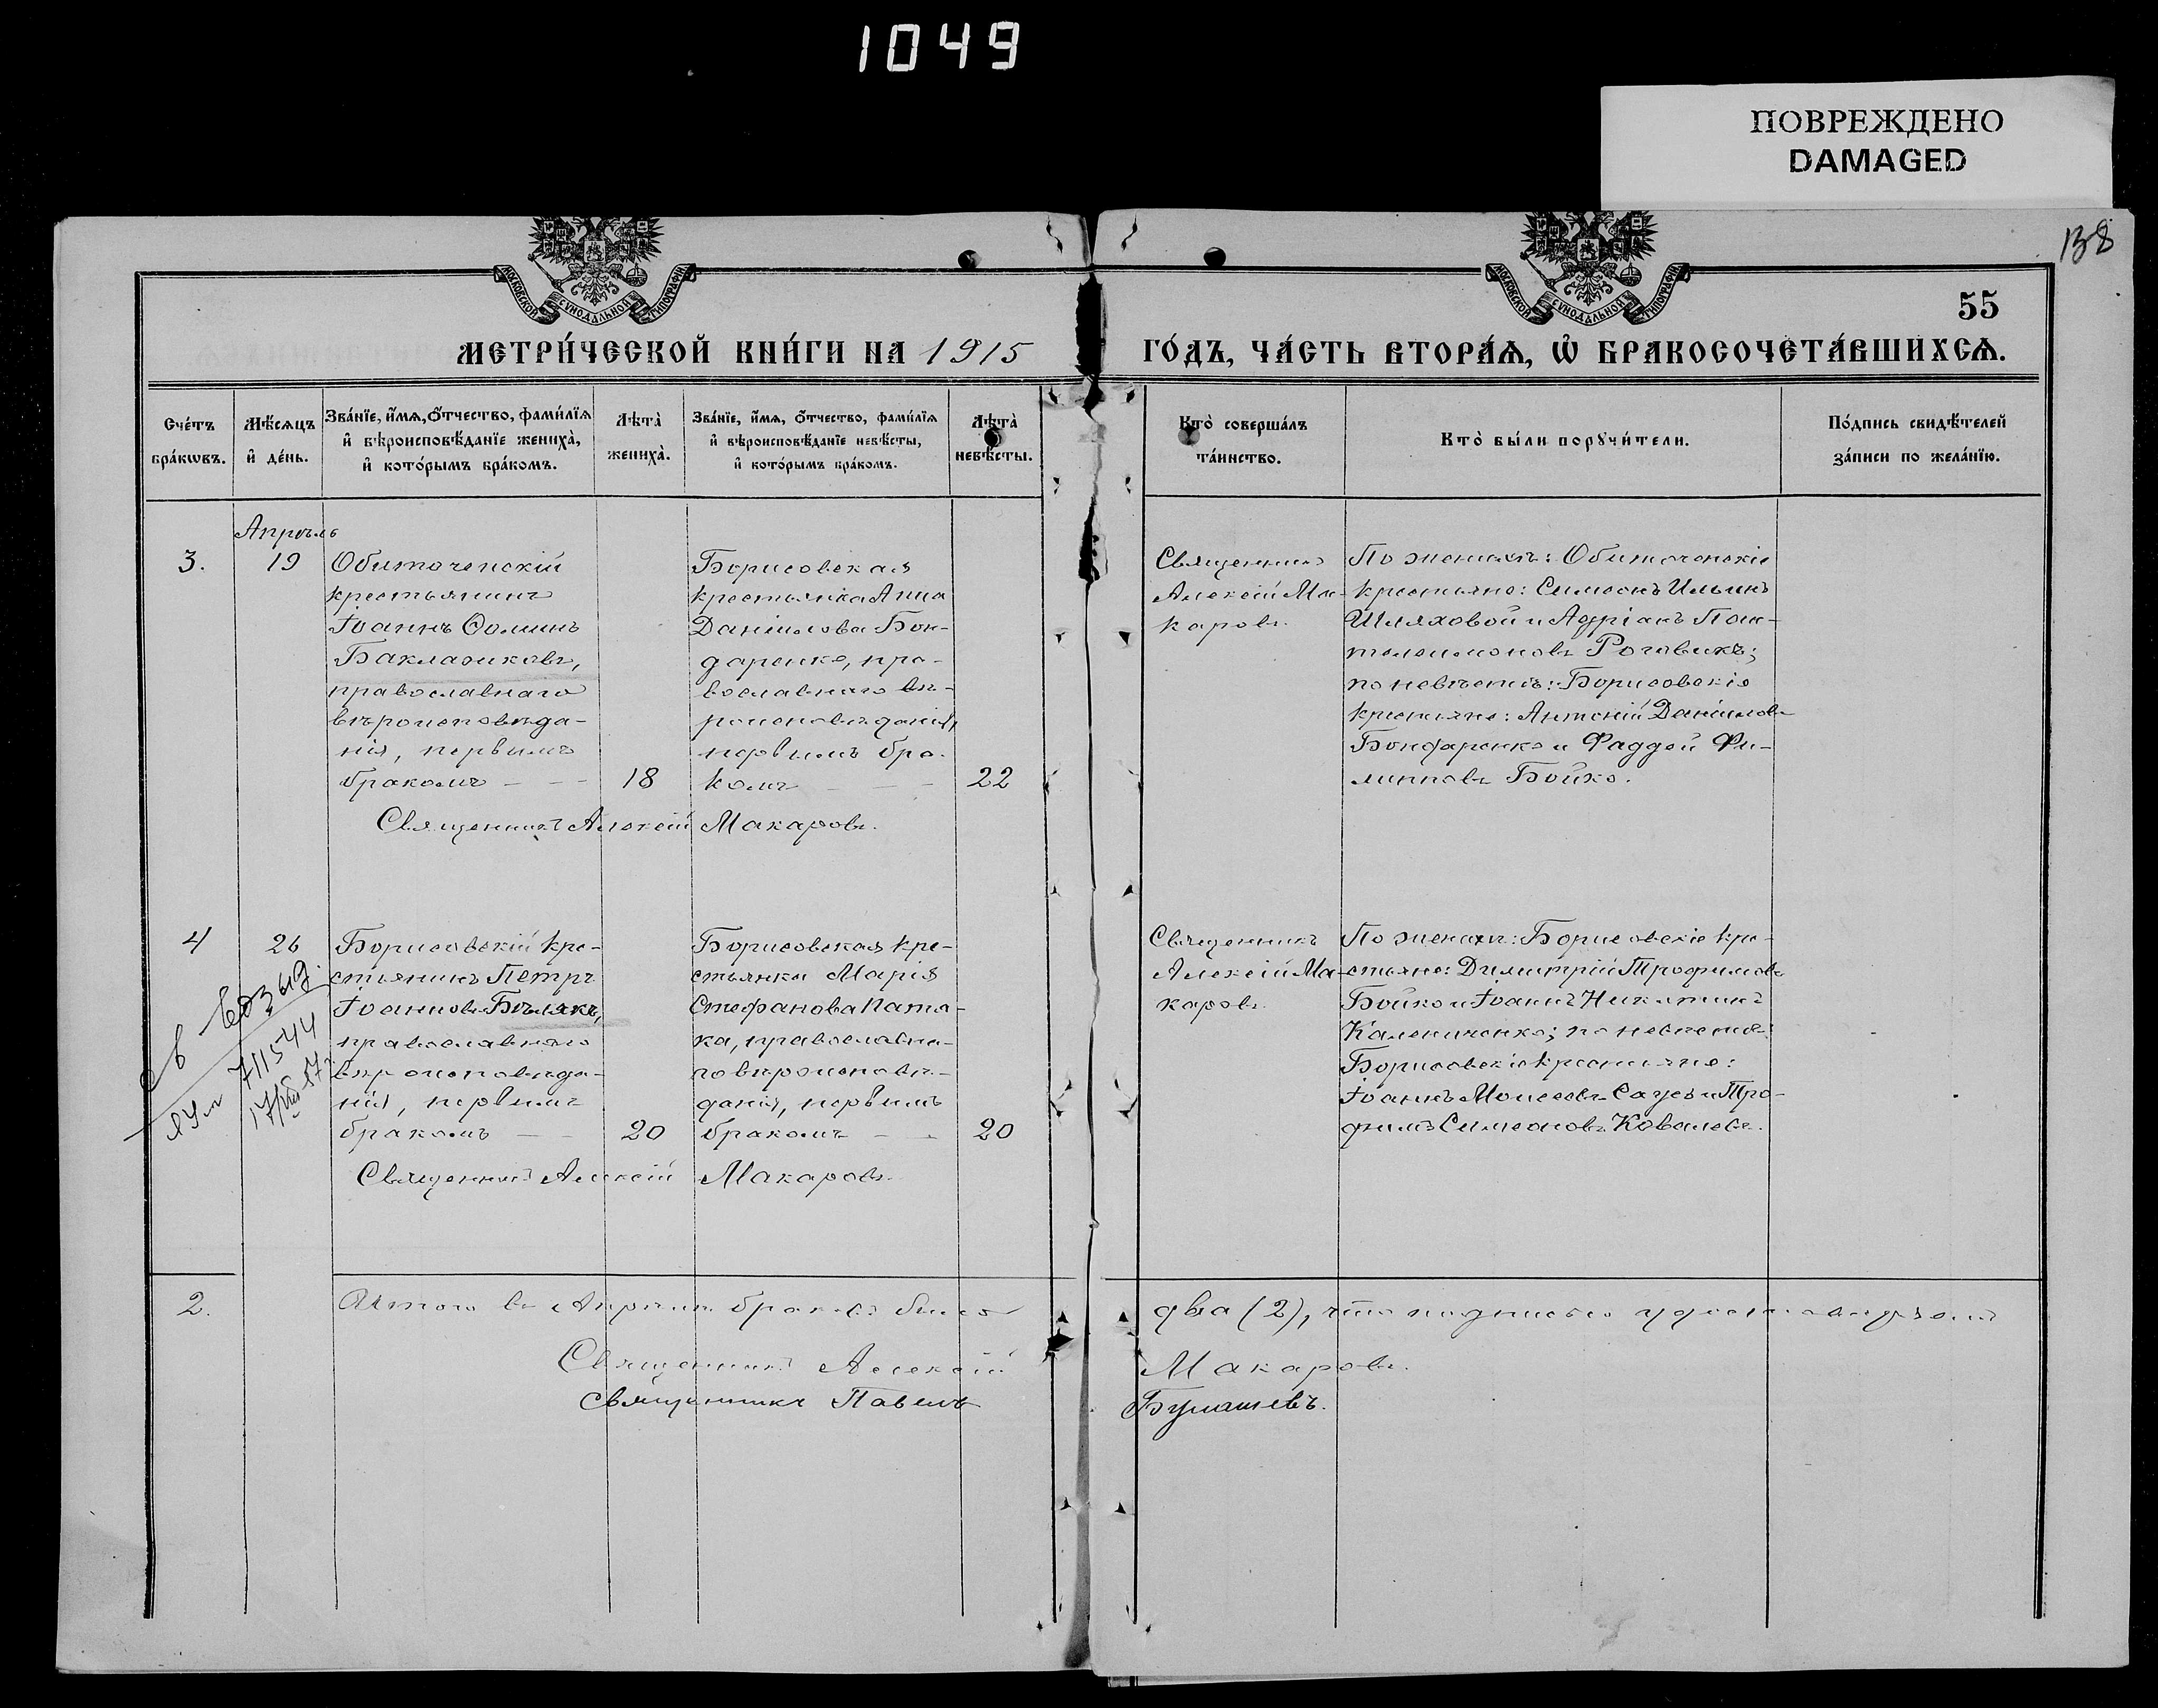 1049
ПОВРЕЖДЕНО
DAMAGED
138
МОСКОВСКОЙ СѴНОДАЛЬНОЙ ТИПОГРАФІИ
МОСКОВСКОЙ СѴНОДАЛЬНОЙ ТИПОГРАФІИ
55
МЕТРИ́ЧЕСКОЙ КНИ́ГИ НА 1915 ГО́ДЪ, ЧА́СТЬ ВТОРА́Ѧ, Ѽ БРАКОСОЧЕТА́ВШИХСѦ.
Сче́тъ
бра́кѡвъ.
Мѣ́сяцъ
и҆ де́нь.
Зва́нїе, и҆́мя, ѻ҆́тчество, фами́лїя
и҆ вѣроисповѣ́данїе жениха̀,
и҆ кото́рымъ бра́комъ.
Лѣта̀
жениха̀.
Зва́нїе, и҆́мя, ѻ҆́тчество, фами́лїя
и҆ вѣроисповѣ́данїе невѣ́сты,
и҆ кото́рымъ бра́комъ.
Лѣта̀
невѣ́сты.
Кто̀ соверша́лъ
та́инство.
Кто̀ бы́ли порꙋчи́тели.
По́дпись свидѣ́телей
за́писи по жела́нїю.
Апрѣль
3.
19
Обиточенскій
крестьянинъ
Іоаннъ Ѳоминъ
Баклажиковъ,
православнаго
вѣроисповѣда-
нія, первымъ
бракомъ — — —
18
Борисовская
крестьянка Анна
Даніилова Бон-
даренко, пра-
вославнаго вѣ-
роисповѣданія,
первымъ бра-
комъ — — —
22
Священникъ Алексій Макаровъ.
Священникъ
Алексій Ма-
каровъ.
По женихѣ: Обиточенскіе
крестьяне: Симеонъ Ильинъ
Шляховой и Адріанъ Пан-
телеимоновъ Роговикъ;
по невѣстѣ: Борисовскіе
крестьяне: Антоній Даніиловъ
Бондаренко и Фаддей Фи-
липповъ Бойко.
4
26
Борисовскій кре-
стьянинъ Петръ
Іоанновъ Бѣлякъ,
православнаго
вѣроисповѣда-
нія, первымъ
бракомъ — —
20
Борисовская кре-
стьянка Марія
Стефанова Пата-
ка, православна-
го вѣроисповѣ-
данія, первымъ
бракомъ — —
20
Священникъ Алексій Макаровъ.
Священникъ
Алексій Ма-
каровъ.
По женихѣ: Борисовскіе кре-
стьяне: Димитрій Трофимовъ
Бойко и Іоаннъ Никитинъ
Калениченко; по невѣстѣ:
Борисовскіе крестьяне:
Іоаннъ Моисеевъ Сауов и Тро-
фимъ Симеоновъ Ковалевъ.
711544
2.
Итого въ Апрѣлѣ браковъ было два (2), что подписью удостовѣряемъ
Священникъ Алексій Макаровъ.
Священникъ Павелъ Булашевъ.